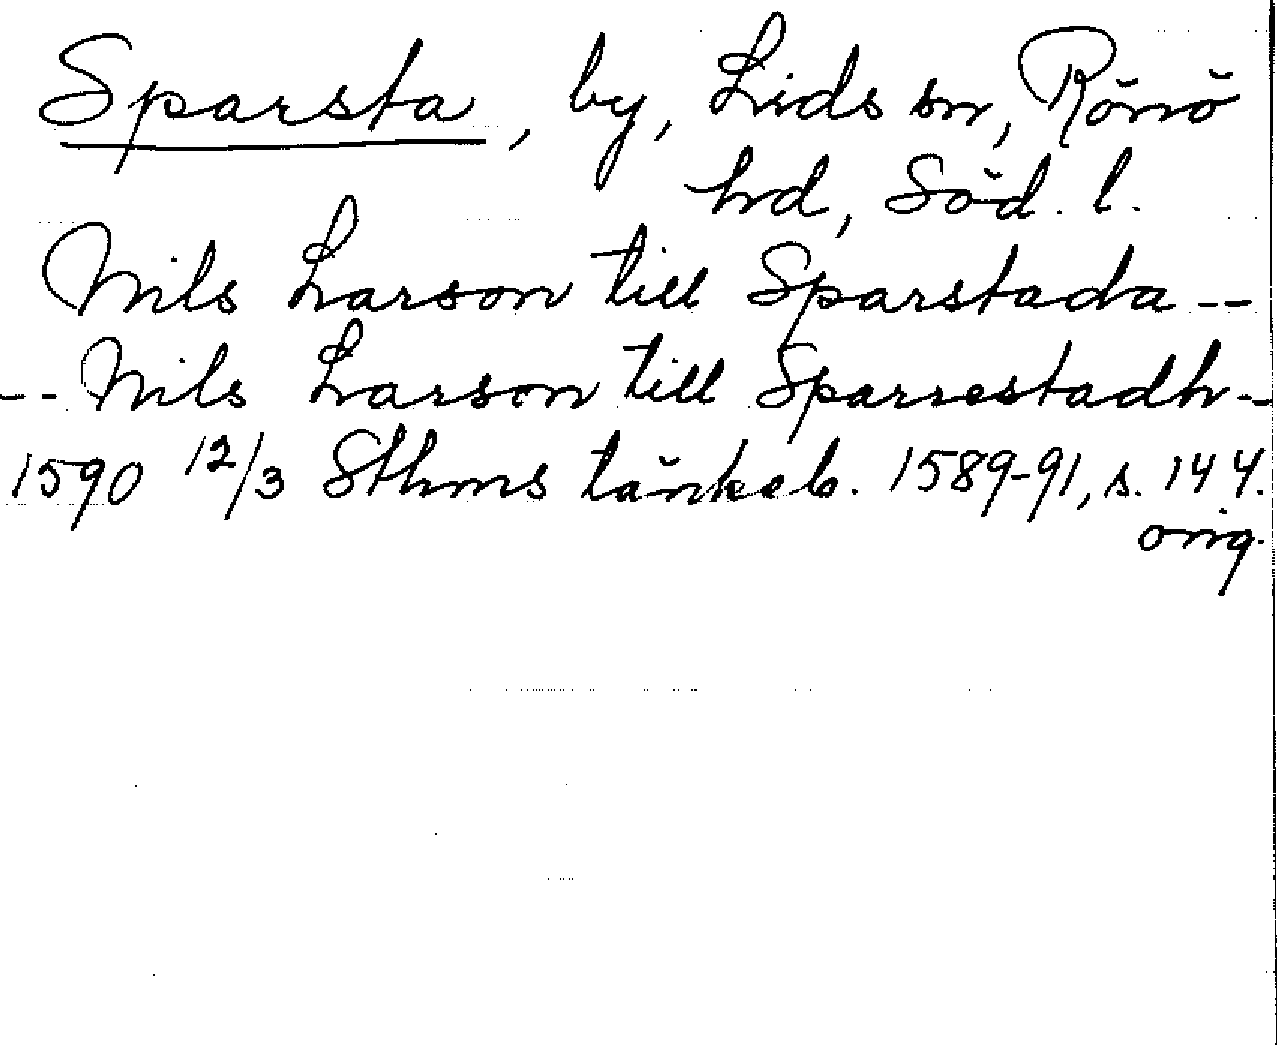 Sparsta, by, Lids sn, Rönö
hd, Söd. l.
Nils Larson till Sparstada --
-- Nils Larson till Sparrestadh -
1590 12/3 Sthms tänkeb. 1589-91, s. 144.
orig.